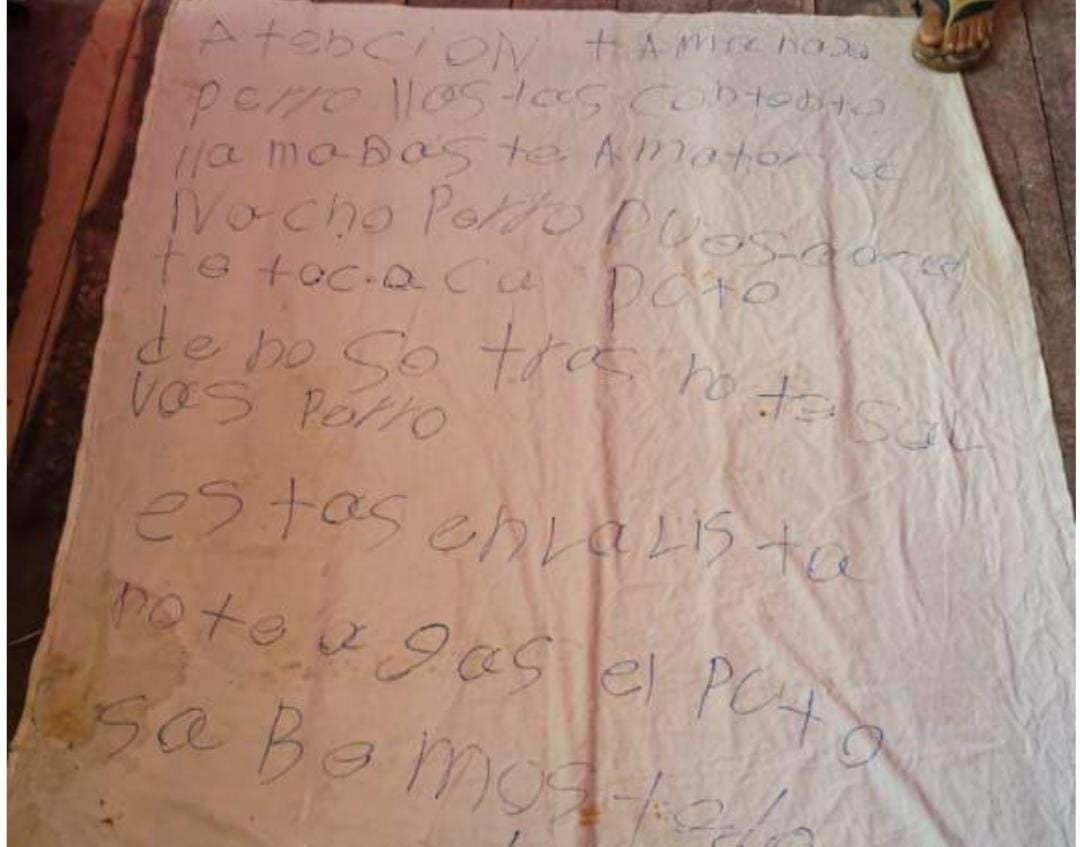 AtenCiON tAmachaso
perro llastas contento
llamaDas te Amator a
Nacho Perro Pues aora
te toca a Ca puto
de no So tras no te Sal
vas Perro
estas enLaLista
no te agas el Puto
sa Be mos todo